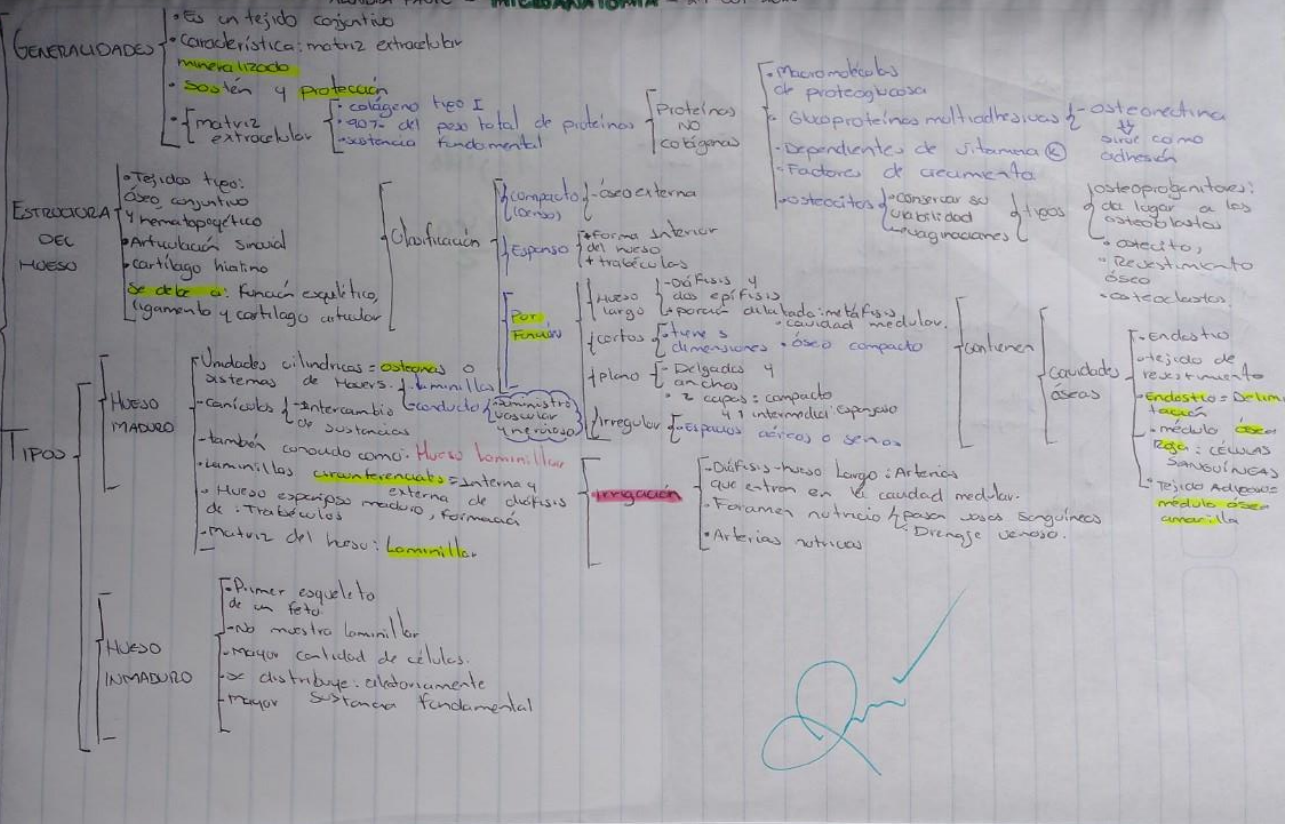 MICROANATOMÍA
GENERALIDADES
• Es un tejido conjuntivo
• Característica: matriz extracelular
mineralizado
• Sostén y protección
• matriz
extracelular
• colágeno tipo I
• 90% del peso total de proteínas
• sustancia fundamental
Proteínas
NO
colágenas
• Macromoléculas
de proteoglucosa
• Glucoproteínas multiadhesivas
- osteonectina
sirve como
adhesión
- Dependientes de vitamina K
- Factores de crecimiento
- osteocitos
- conservar su
viabilidad
- invaginaciones
tipos
osteoprogenitores:
da lugar a los
osteoblastos
• osteocito,
• Revestimiento
óseo
- osteoclastos.
ESTRUCTURA
DEL
HUESO
• Tejidos tipo:
óseo conjuntivo
y hematopoyético
• Articulación sinovial
• cartílago hialino
se debe a: Función esquelético,
ligamento y cartílago articular
Clasificación
compacto
(Denso)
- óseo externa
Esponso
+ forma interior
del hueso
+ trabéculas
Por
Función
Hueso
largo
- Diáfisis y
dos epífisis
porción dilatada: metáfisis
• cavidad medular.
cortos
• tiene 3
dimensiones • óseo compacto
plano
- Delgados y
anchos
• 2 capas: compacto
y 1 intermedia esponjoso
Irregular
- Espacios aéreos o senos
contienen
cavidades
óseas
- Endostio
• tejido de
revestimiento
- Endostio = Delim
tación
- médula ósea
Roja: CÉLULAS
SANGUÍNEAS
• Tejido Adiposo =
médula ósea
amarilla
TIPOS
HUESO
MADURO
• Unidades cilíndricas = osteonas o
sistemas de Havers.
- laminillas
- conducto
suministro
vascular
y nervioso
- canículos
- Intercambio
de sustancias
- también conocido como: Hueso Laminillar
• Laminillas circunferenciales = Interna y
externa de diáfisis
• Hueso esponjoso maduro, formación
de: Trabéculas
- Matriz del hueso: Laminillar
Irrigación
- Diáfisis - hueso Largo: Arterias
que entran en la cavidad medular.
- Foramen nutricio
pasan vasos sanguíneos
• Drenaje venoso.
• Arterias nutricas
HUESO
INMADURO
- Primer esqueleto
de un feto
- No muestra laminillar
- Mayor cantidad de células.
- se distribuye: aleatoriamente
- mayor sustancia fundamental